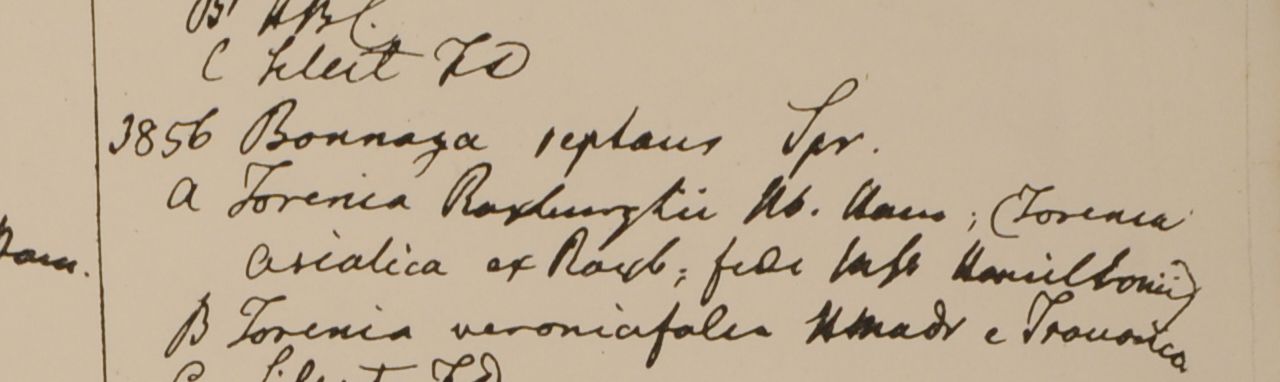 B HBC.
C Silhet FD
3856 Bonnaya reptans Spr.
A Torenia Roxburghii Hb. Ham; (Torenia
asiatica ex Roxb; fide Mss Hamiltonii)
B Torenia veroniafolia HMadr e Travanca
C Silhet FD